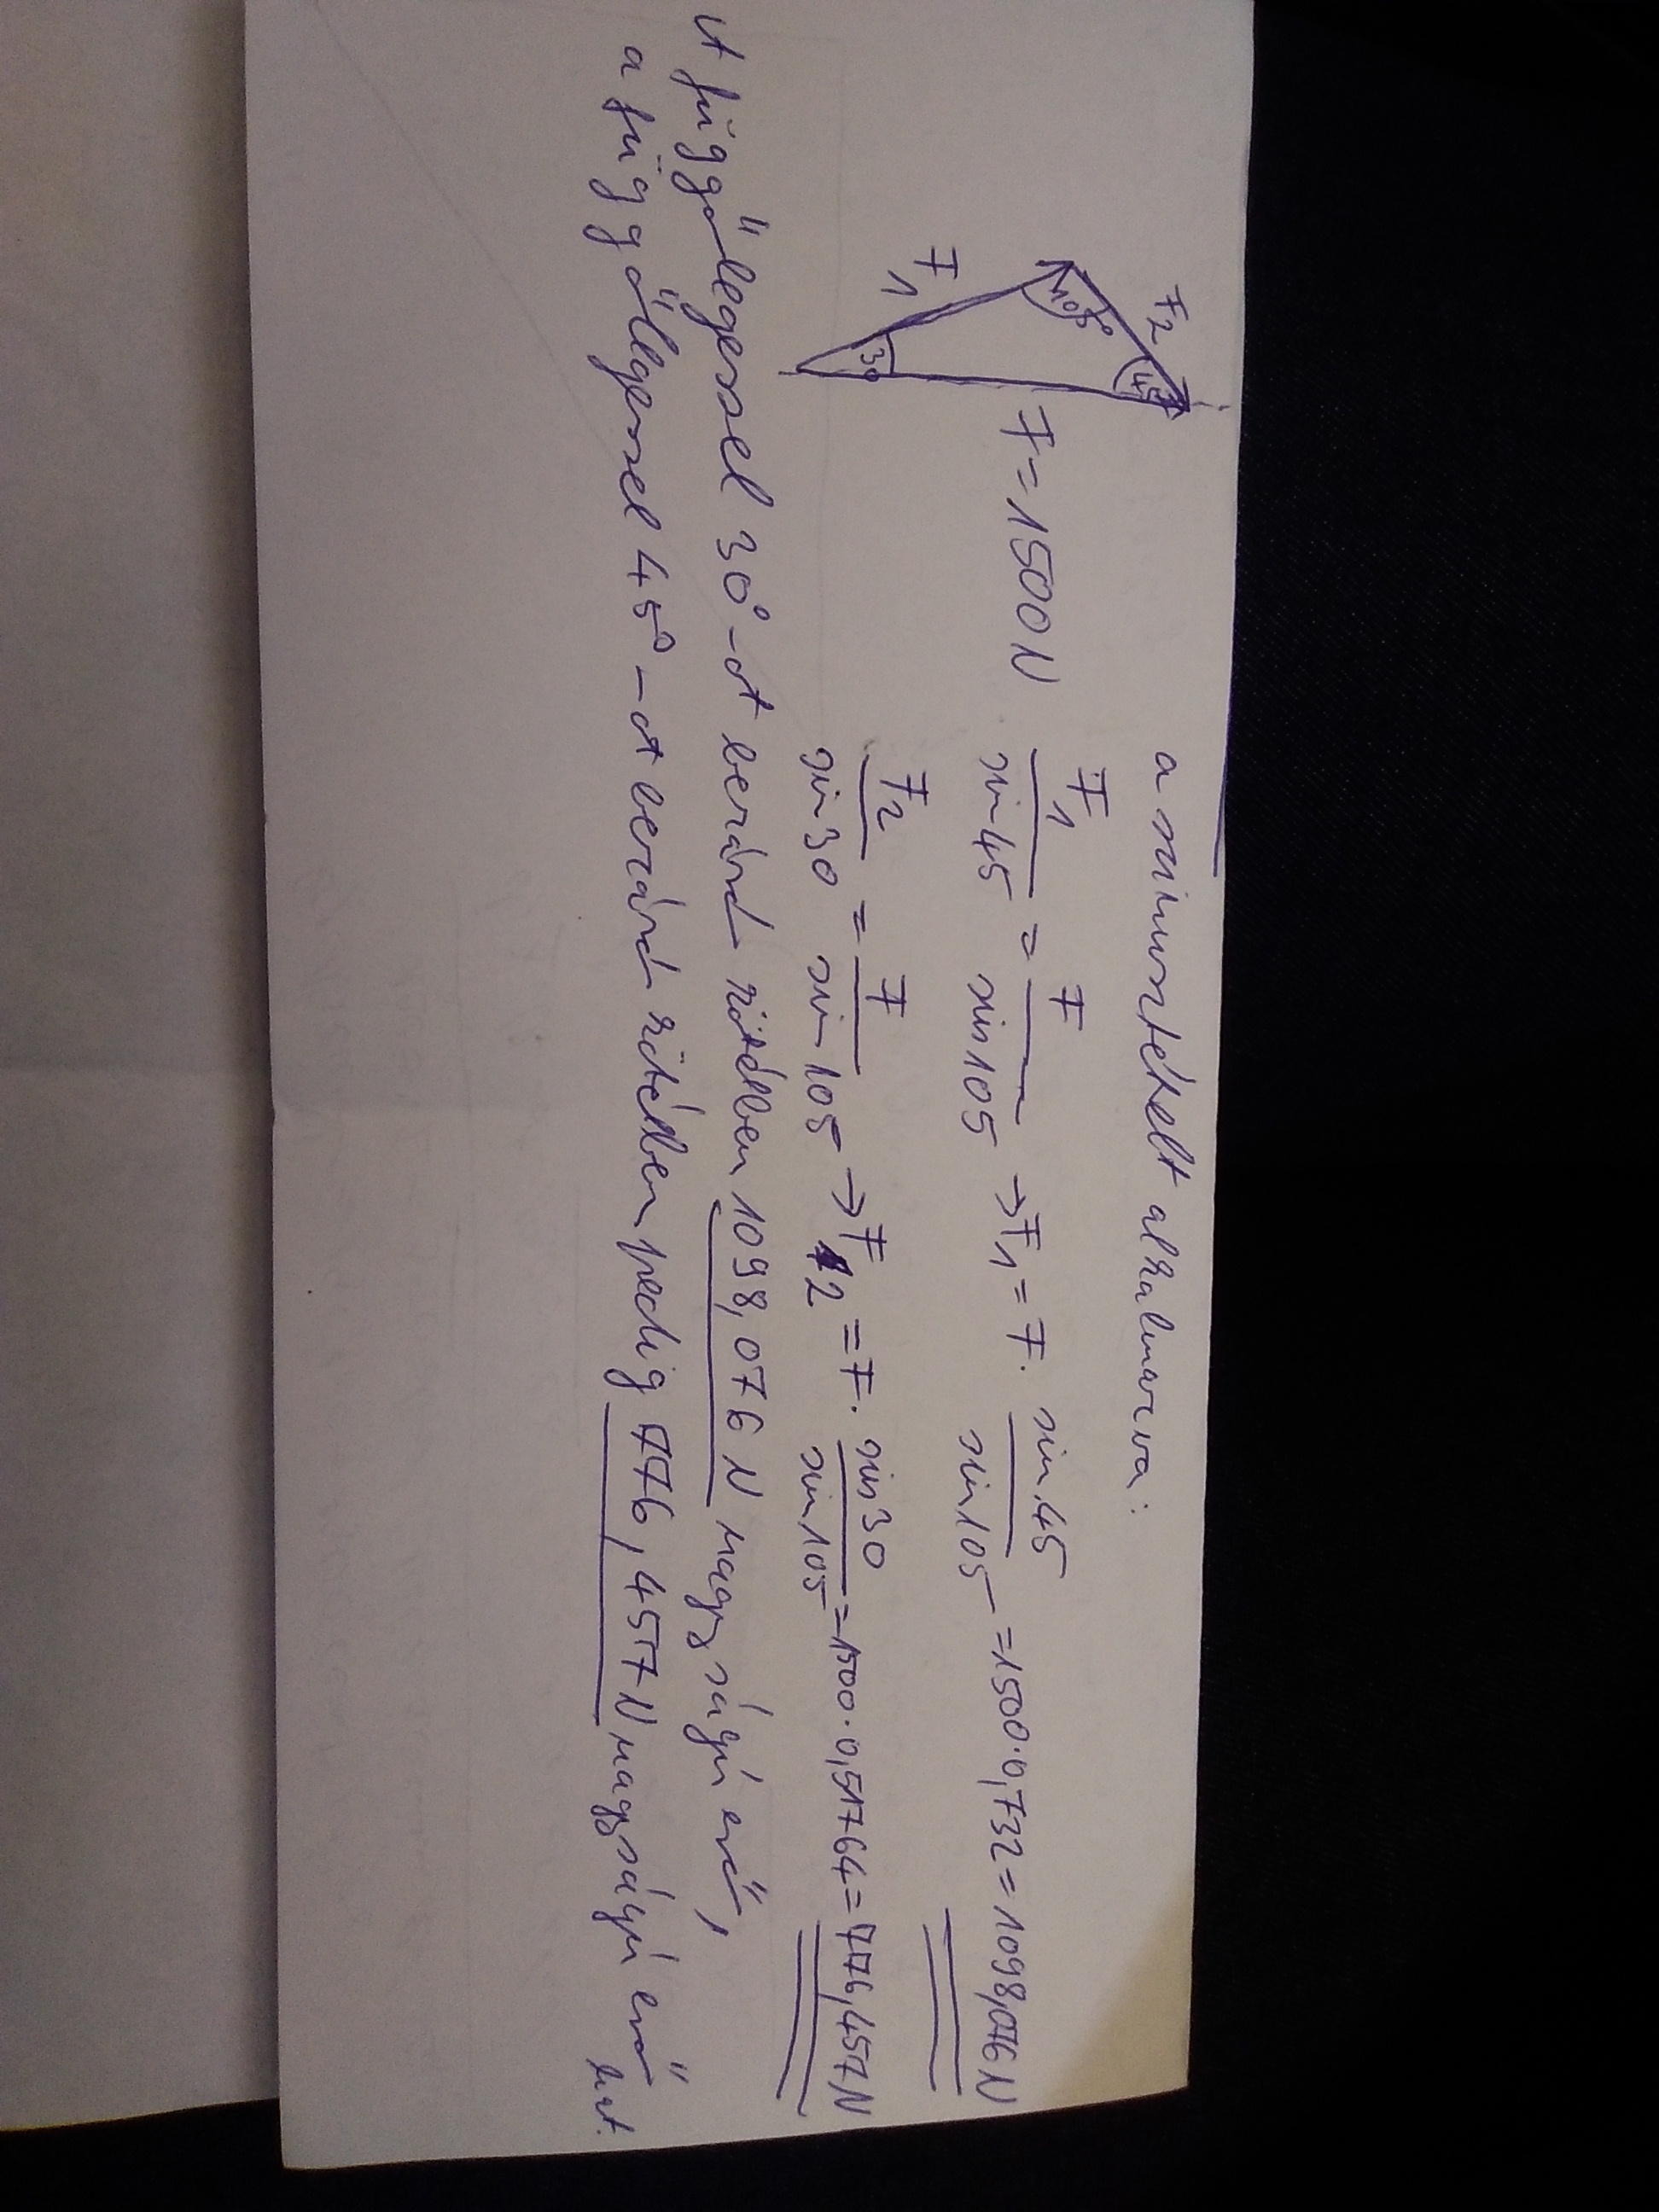 a szinusztételt alkalmazva:
F2
105°
45°
F1
30
F=1500N
F1/sin45 = F/sin105 → F1 = F · sin45/sin105 = 1500·0,732 = 1098,076N
F2/sin30 = F/sin105 → F2 = F · sin30/sin105 = 1500·0,51764 = 776,457N
A függőlegessel 30°-ot bezáró kötélben 1098,076N nagyságú erő,
a függőlegessel 45°-ot bezáró kötélben pedig 776,457N nagyságú erő hat.